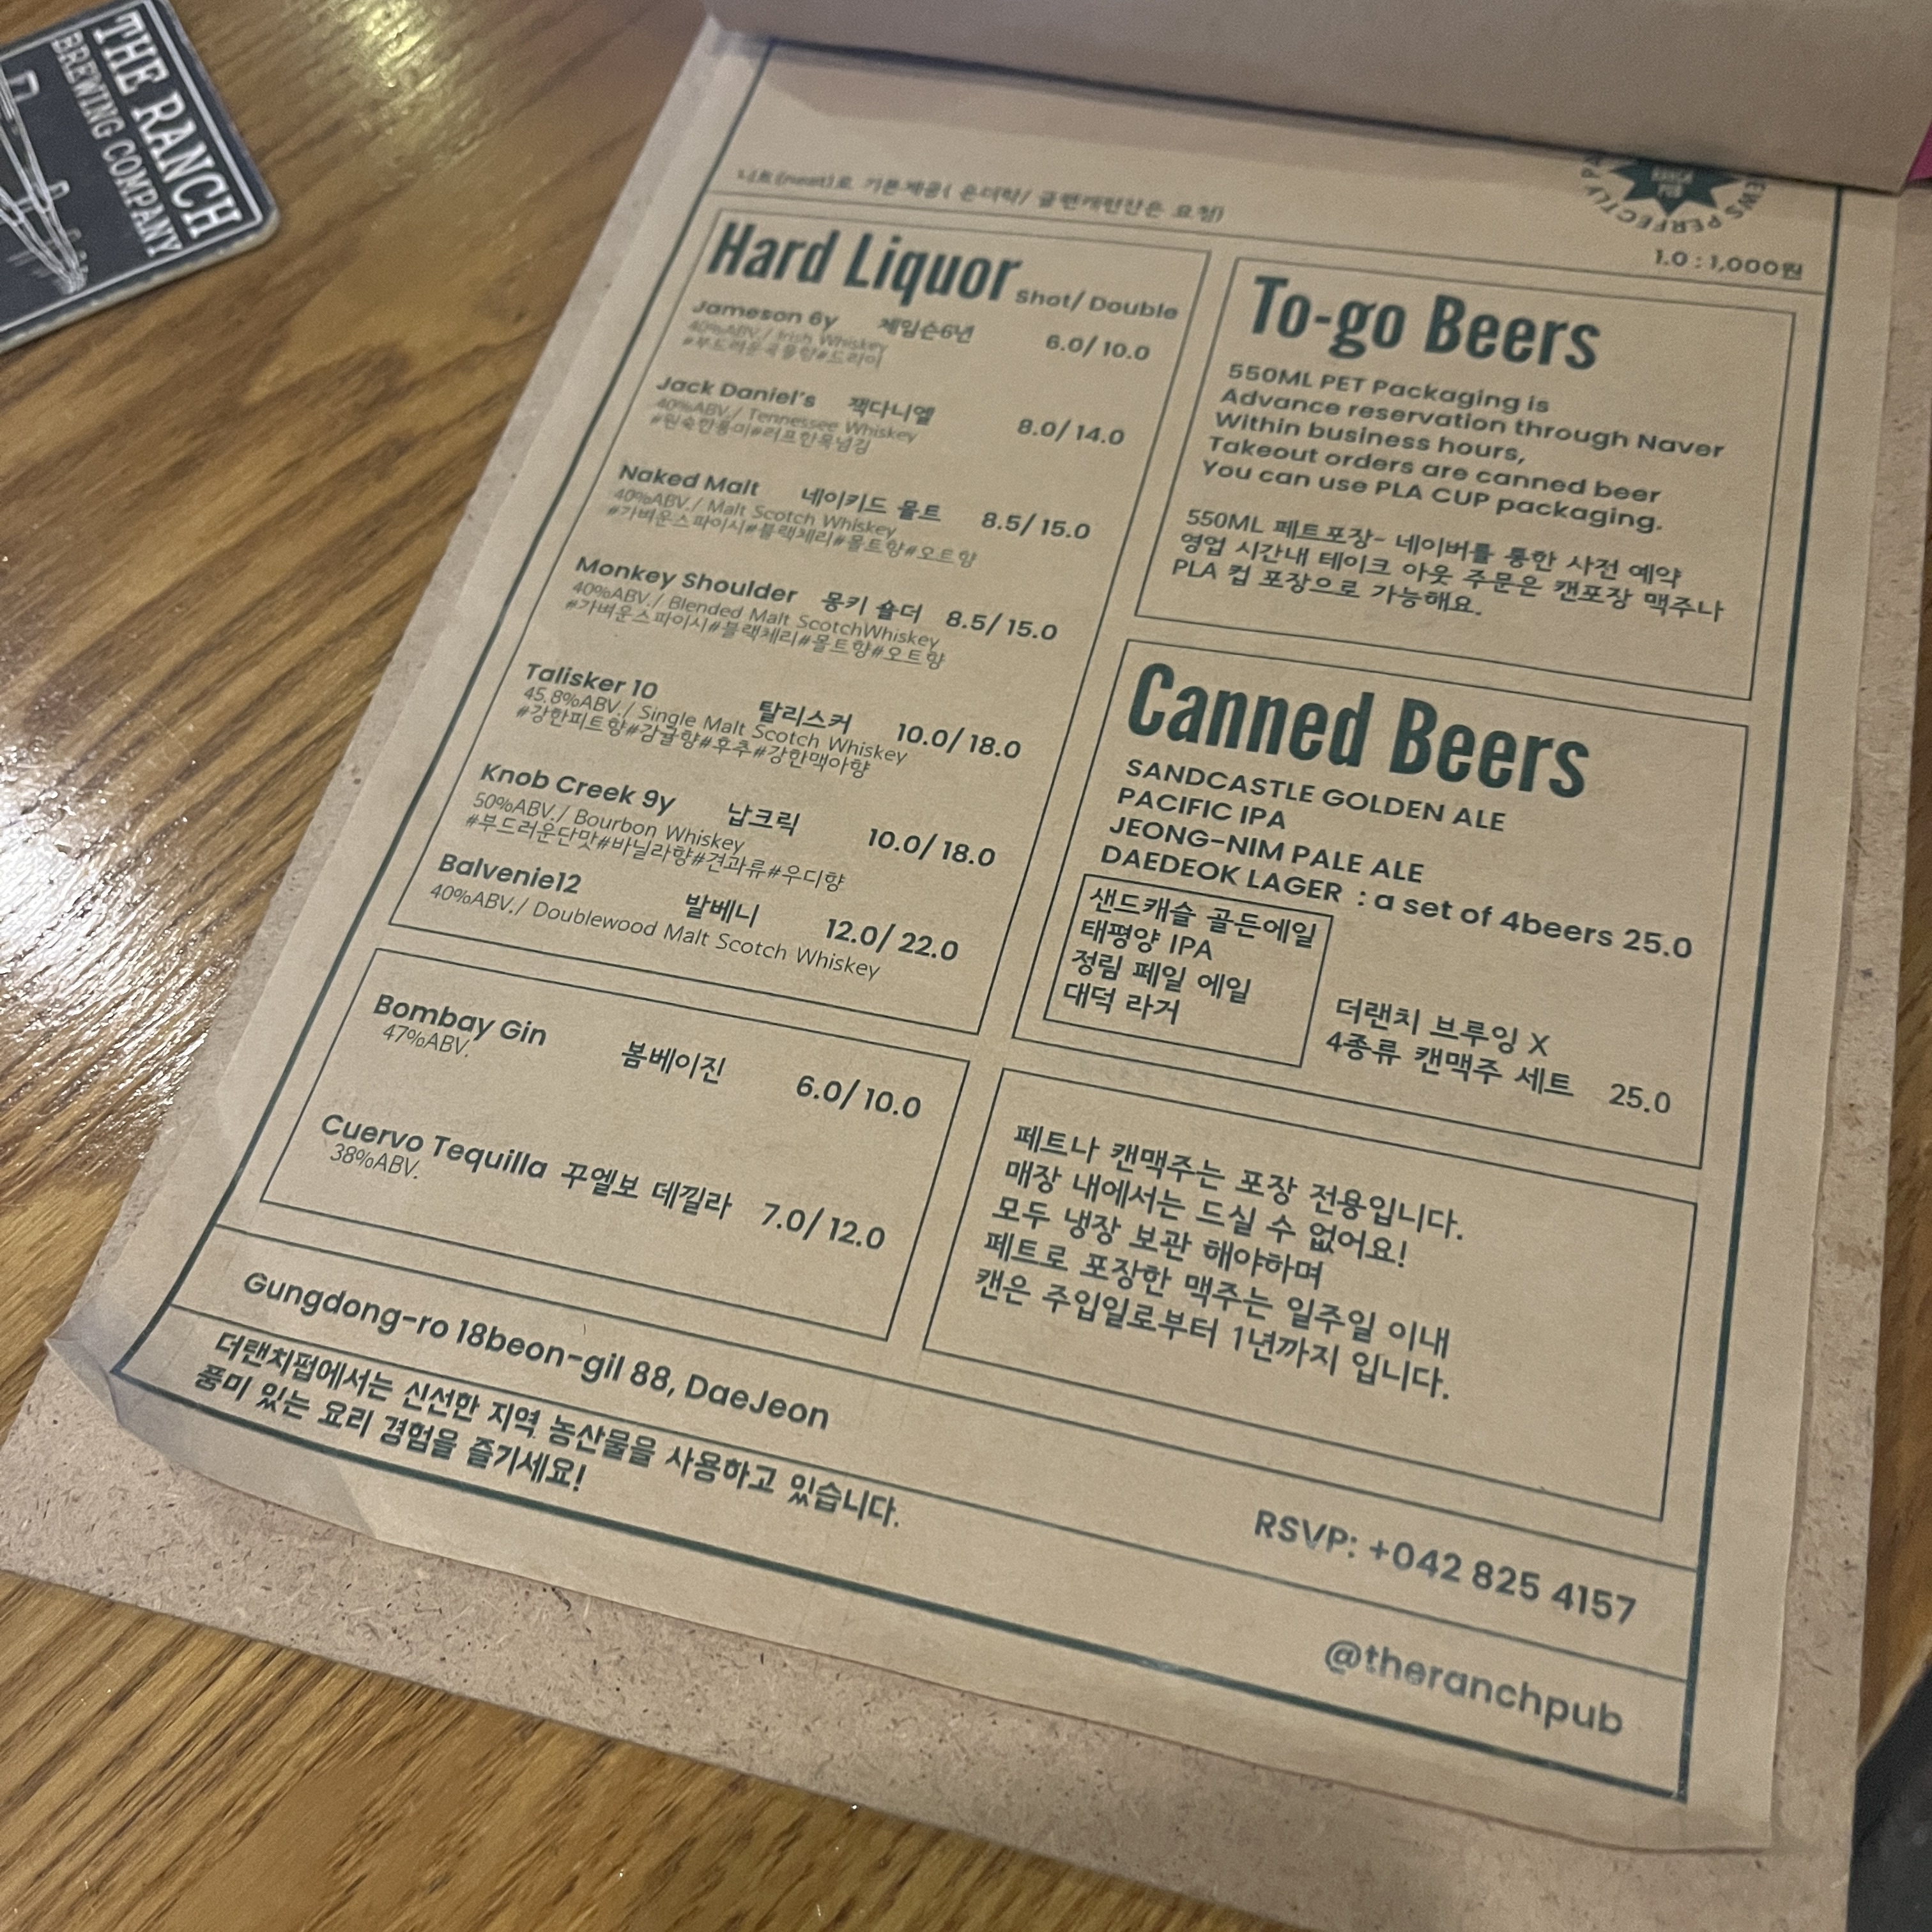 THE RANCH
BREWING COMPANY
니트(neat)로 기본제공( 온더락/ 글랜캐런잔은 요청)
PERFECTLY
PERFECTLY
PUB
1.0 : 1,000원
Hard Liquor Shot/ Double
Jameson 6y 제임슨6년 6.0/ 10.0
40%ABV./ Irish Whiskey
#부드러운곡물향#드라이
Jack Daniel's 잭다니엘 8.0/ 14.0
40%ABV./ Tennessee Whiskey
#원숙한풍미#러프한목넘김
Naked Malt 네이키드 몰트 8.5/ 15.0
40%ABV./ Malt Scotch Whiskey
#가벼운스파이시#블랙체리#몰트향#오트향
Monkey Shoulder 몽키 숄더 8.5/ 15.0
40%ABV./ Blended Malt ScotchWhiskey
#가벼운스파이시#블랙체리#몰트향#오트향
Talisker 10 탈리스커 10.0/ 18.0
45.8%ABV./ Single Malt Scotch Whiskey
#강한피트향#감귤향#후추#강한맥아향
Knob Creek 9y 납크릭 10.0/ 18.0
50%ABV./ Bourbon Whiskey
#부드러운단맛#바닐라향#견과류#우디향
Balvenie12 발베니 12.0/ 22.0
40%ABV./ Doublewood Malt Scotch Whiskey
Bombay Gin 봄베이진 6.0/ 10.0
47%ABV.
Cuervo Tequilla 꾸엘보 데낄라 7.0/ 12.0
38%ABV.
To-go Beers
550ML PET Packaging is
Advance reservation through Naver
Within business hours,
Takeout orders are canned beer
You can use PLA CUP packaging.
550ML 페트포장- 네이버를 통한 사전 예약
영업 시간내 테이크 아웃 주문은 캔포장 맥주나
PLA 컵 포장으로 가능해요.
Canned Beers
SANDCASTLE GOLDEN ALE
PACIFIC IPA
JEONG-NIM PALE ALE
DAEDEOK LAGER : a set of 4beers 25.0
샌드캐슬 골든에일
태평양 IPA
정림 페일 에일
대덕 라거
더랜치 브루잉 X
4종류 캔맥주 세트 25.0
페트나 캔맥주는 포장 전용입니다.
매장 내에서는 드실 수 없어요!
모두 냉장 보관 해야하며
페트로 포장한 맥주는 일주일 이내
캔은 주입일로부터 1년까지 입니다.
Gungdong-ro 18beon-gil 88, DaeJeon
RSVP: +042 825 4157
더랜치펍에서는 신선한 지역 농산물을 사용하고 있습니다.
풍미 있는 요리 경험을 즐기세요!
@theranchpub